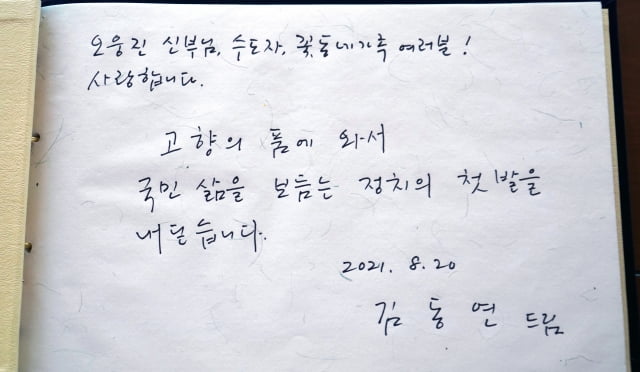 오웅진 신부님, 수도자, 꽃동네가족 여러분!
사랑합니다.
고향의 품에 와서
국민 삶을 보듬는 정치의 첫발을
내딛습니다.
2021. 8. 20
김동연 드림